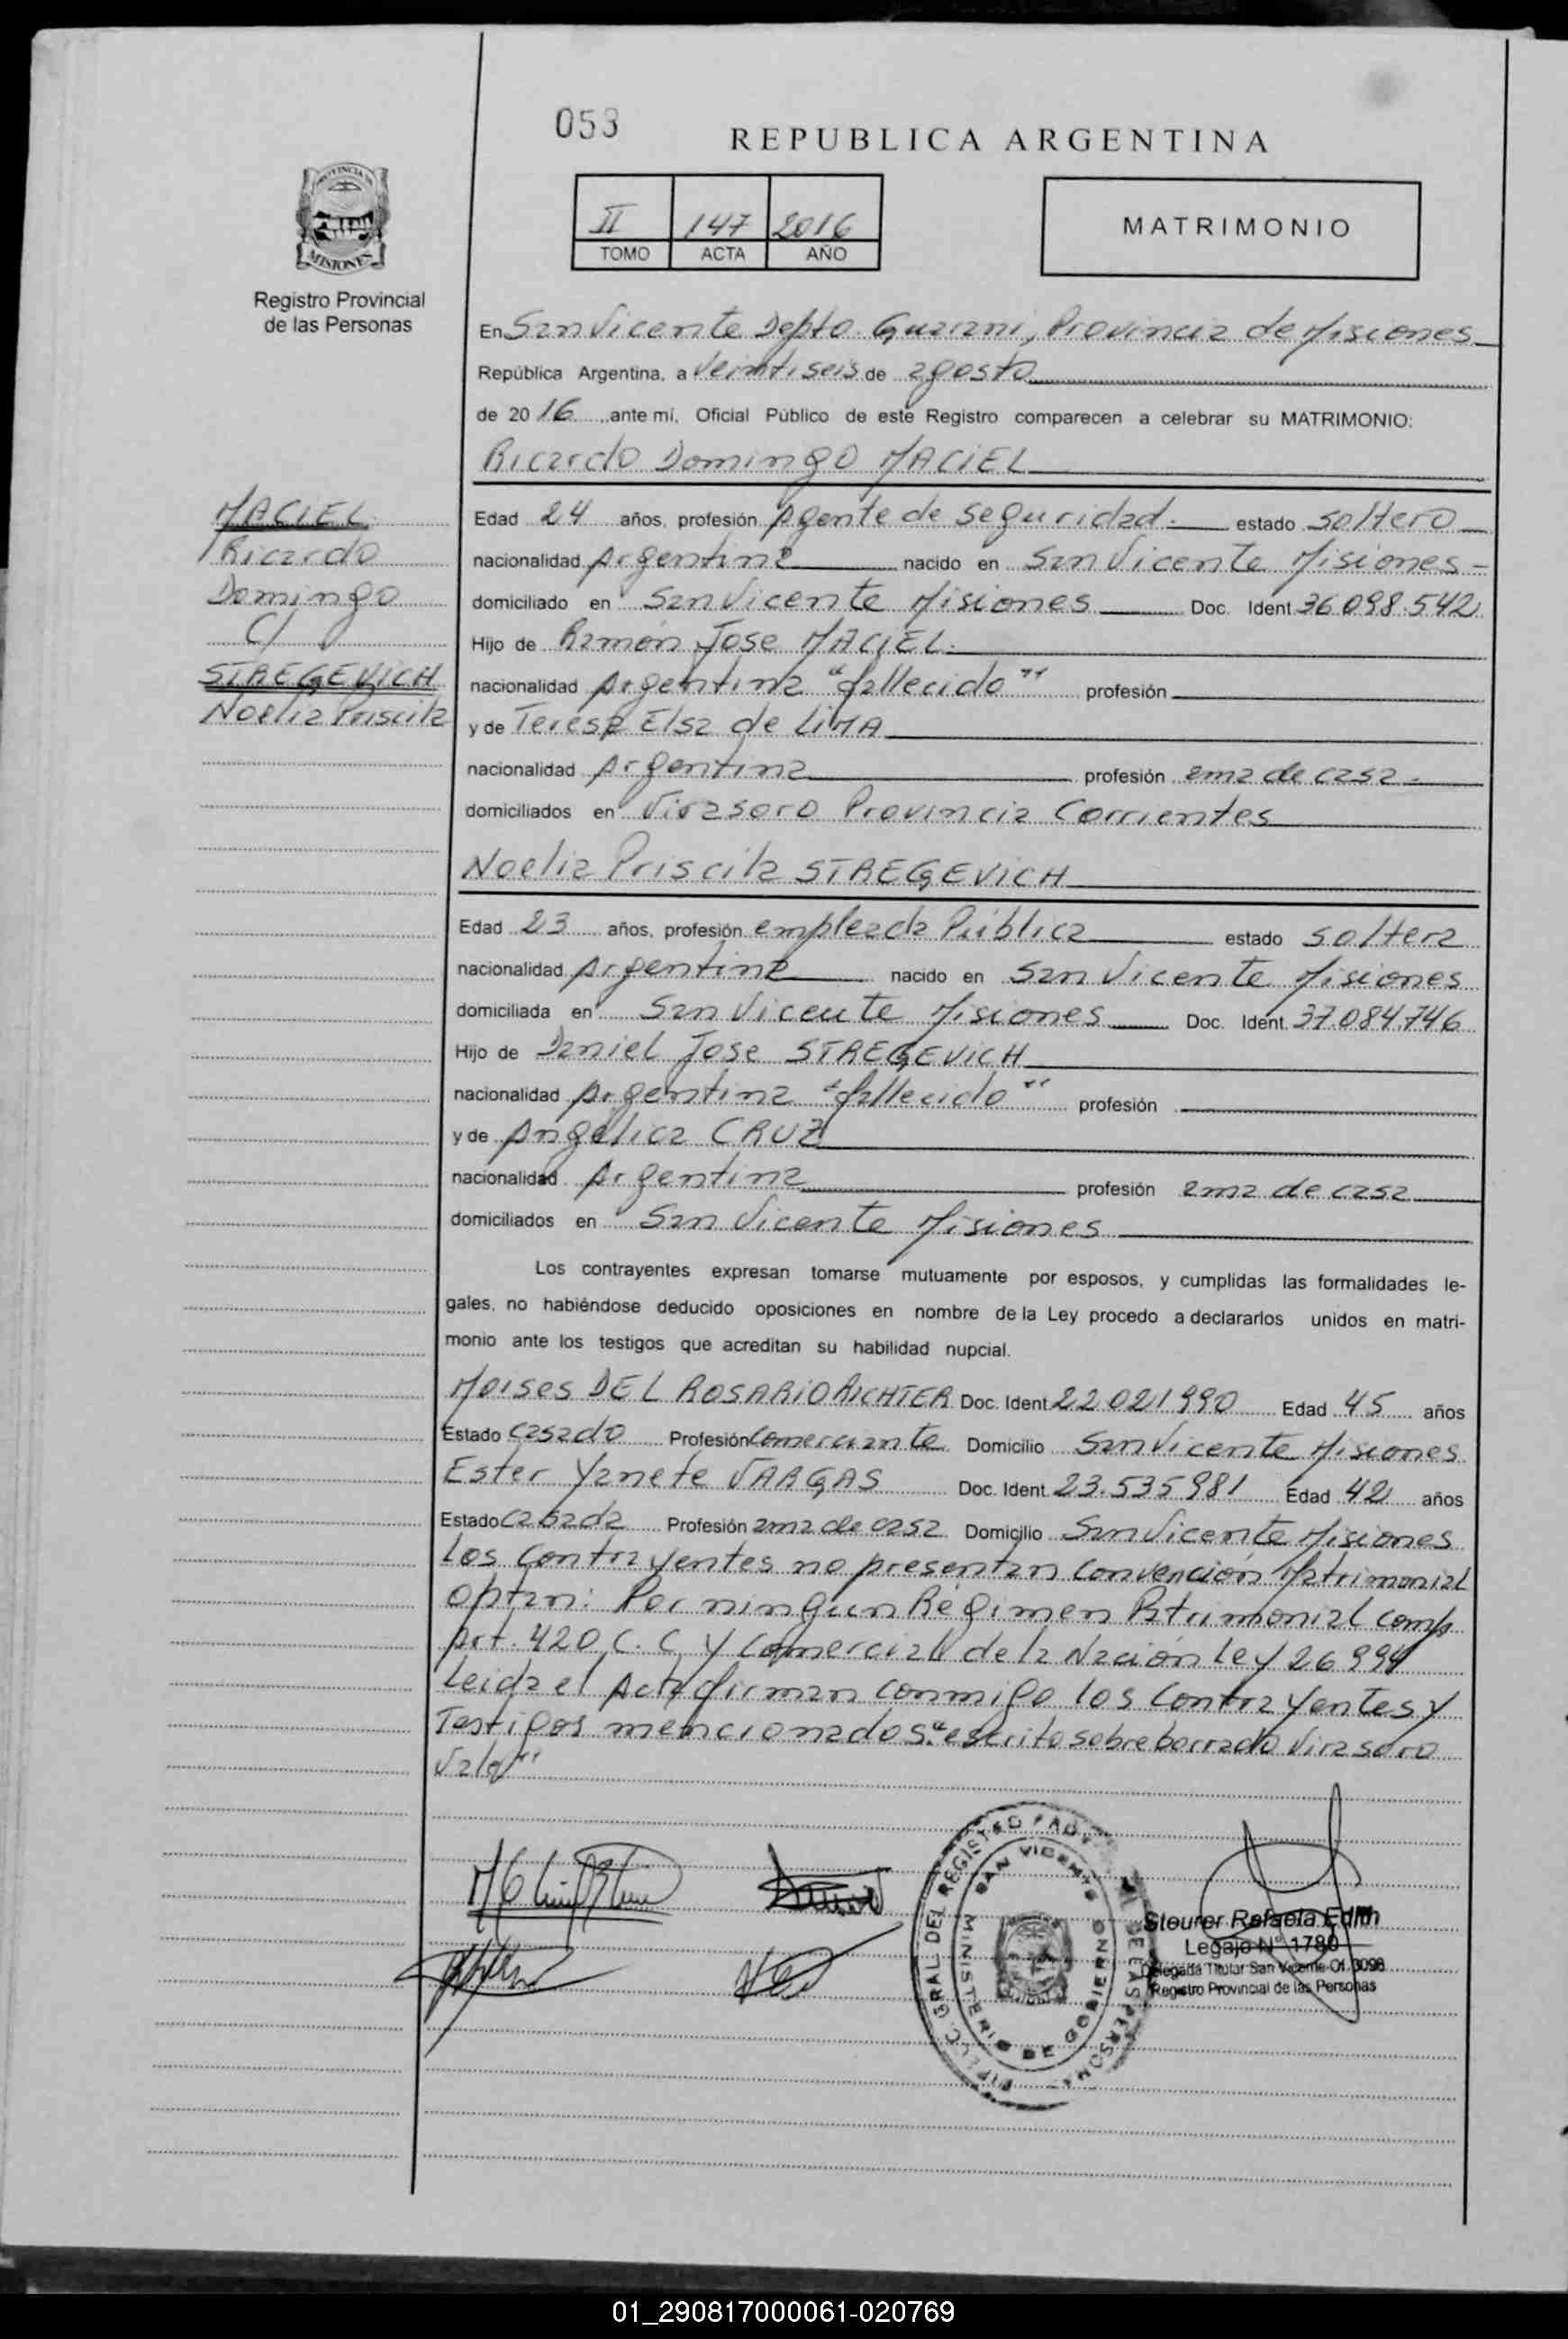 053
REPUBLICA ARGENTINA
II 147 2016
TOMO ACTA AÑO
MATRIMONIO
PROVINCIA DE
MISIONES
Registro Provincial
de las Personas
En San Vicente Depto. Guarani, Provincia de Misiones
República Argentina, a veintiseis de agosto
de 2016 ante mí, Oficial Público de este Registro comparecen a celebrar su MATRIMONIO:
Ricardo Domingo MACIEL
MACIEL
Ricardo
Domingo
C/
STREGEVICH
Noelia Priscila
Edad 24 años, profesión Agente de seguridad. estado soltero
nacionalidad Argentina nacido en San Vicente Misiones
domiciliado en San Vicente Misiones Doc. Ident. 36.098.542
Hijo de Ramón Jose MACIEL.
nacionalidad Argentina "fallecido" profesión
y de Teresa Elsa de LIMA
nacionalidad Argentina profesión ama de casa.
domiciliados en Virasoro Provincia Corrientes
Noelia Priscila STREGEVICH
Edad 23 años, profesión empleada Pública estado soltera
nacionalidad Argentina nacido en San Vicente Misiones
domiciliada en San Vicente Misiones Doc. Ident. 37.084.746
Hijo de Daniel Jose STREGEVICH
nacionalidad Argentina "fallecido" profesión
y de Angélica CRUZ
nacionalidad Argentina profesión ama de casa
domiciliados en San Vicente Misiones
Los contrayentes expresan tomarse mutuamente por esposos, y cumplidas las formalidades le-
gales, no habiéndose deducido oposiciones en nombre de la Ley procedo a declararlos unidos en matri-
monio ante los testigos que acreditan su habilidad nupcial.
Moises DEL ROSARIO RICHTER Doc. Ident. 22.021.990 Edad 45 años
Estado casado Profesión Comerciante Domicilio San Vicente Misiones
Ester Yanete VARGAS Doc. Ident. 23.535.981 Edad 42 años
Estado casada Profesión ama de casa Domicilio San Vicente Misiones
Los Contrayentes no presentan convención Matrimonial
Optan: Por ningun Régimen Patrimonial comp
Art. 420 C. C. y Comercial de la Nación Ley 26.994
Leida el Acta firman conmigo los Contrayentes y
Testigos mencionados. "escrito sobre borrado Virasoro
Vale"
SAN VICENTE
MINISTERIO DE GOBIERNO
Steurer Rafaela Edith
Legajo N° 1780
Delegada Titular San Vicente Of. 3098
Registro Provincial de las Personas
01_290817000061-020769